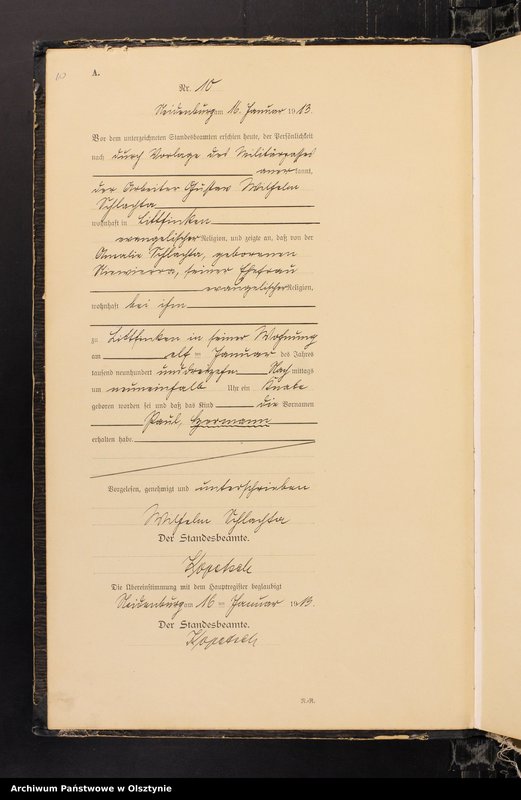 A.
Nr. 10
Neidenburg am 16. Januar 1913.
Vor dem unterzeichneten Standesbeamten erschien heute, der Persönlichkeit
nach durch Vorlage des Militärpasses
anerkannt,
der Arbeiter Gustav Wilhelm
Schlachta
wohnhaft in Littfinken
evangelischer Religion, und zeigte an, daß von der
Amalie Schlachta, geborenen
Niewierra, seiner Ehefrau
evangelischer Religion,
wohnhaft bei ihm
zu Littfinken in seiner Wohnung
am elf ten Januar des Jahres
tausend neunhundert und dreizehn Nachmittags
um neuneinhalb Uhr ein Knabe
geboren worden sei und daß das Kind die Vornamen
Paul, Hermann
erhalten habe.
Vorgelesen, genehmigt und unterschrieben
Wilhelm Schlachta
Der Standesbeamte.
Kopetsch
Die Übereinstimmung mit dem Hauptregister beglaubigt
Neidenburg am 16 ten Januar 1913.
Der Standesbeamte.
Kopetsch
N.-R.
Archiwum Państwowe w Olsztynie